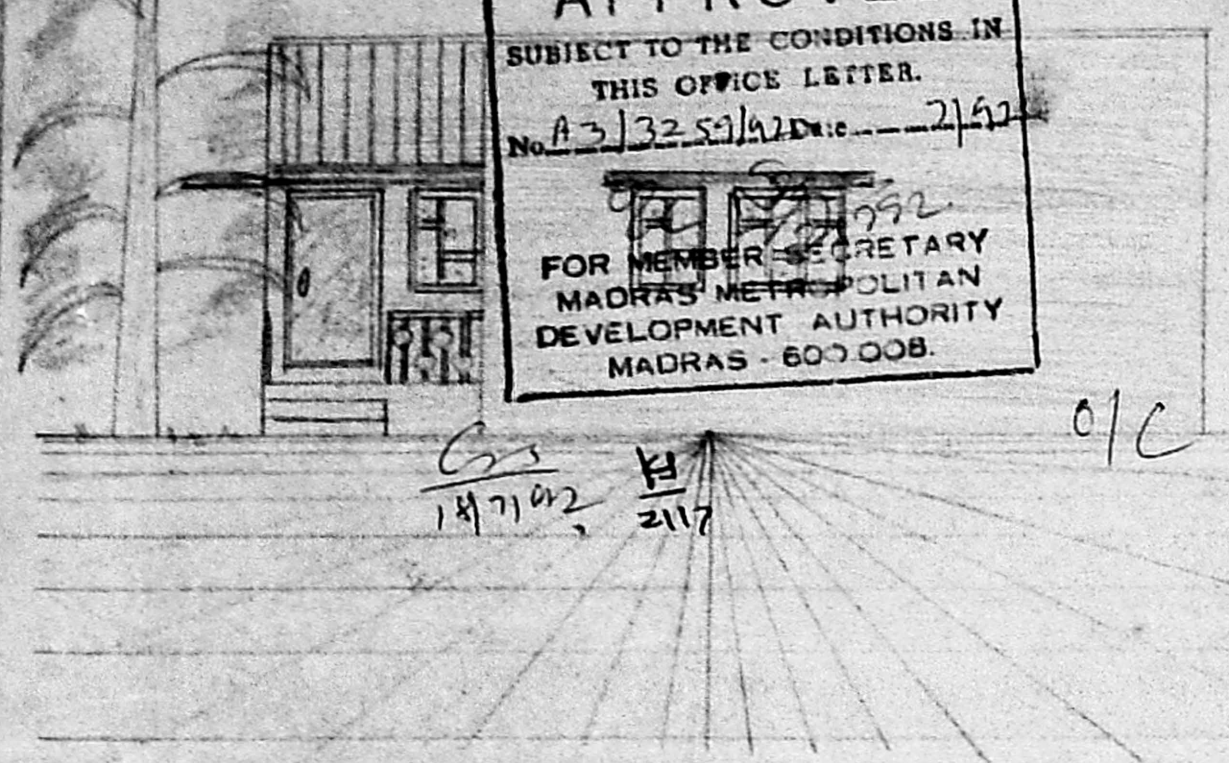 APPROVED
SUBJECT TO THE CONDITIONS IN
THIS OFFICE LETTER.
No. A3/3259/92 Date 7/92
FOR MEMBER SECRETARY
MADRAS METROPOLITAN
DEVELOPMENT AUTHORITY
MADRAS - 600 008.
O/C
2117